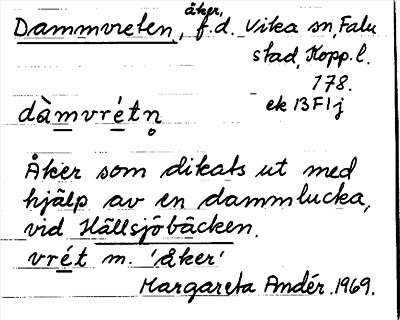 Dammvreten, åker, f.d. Vika sn, Falu
stad, Kopp.l.
178.
ek 13F1j
dàmvrétn̥
Åker som dikats ut med
hjälp av en dammlucka,
vid Hällsjöbäcken.
vrét m. 'åker'
Margareta Andér. 1969.